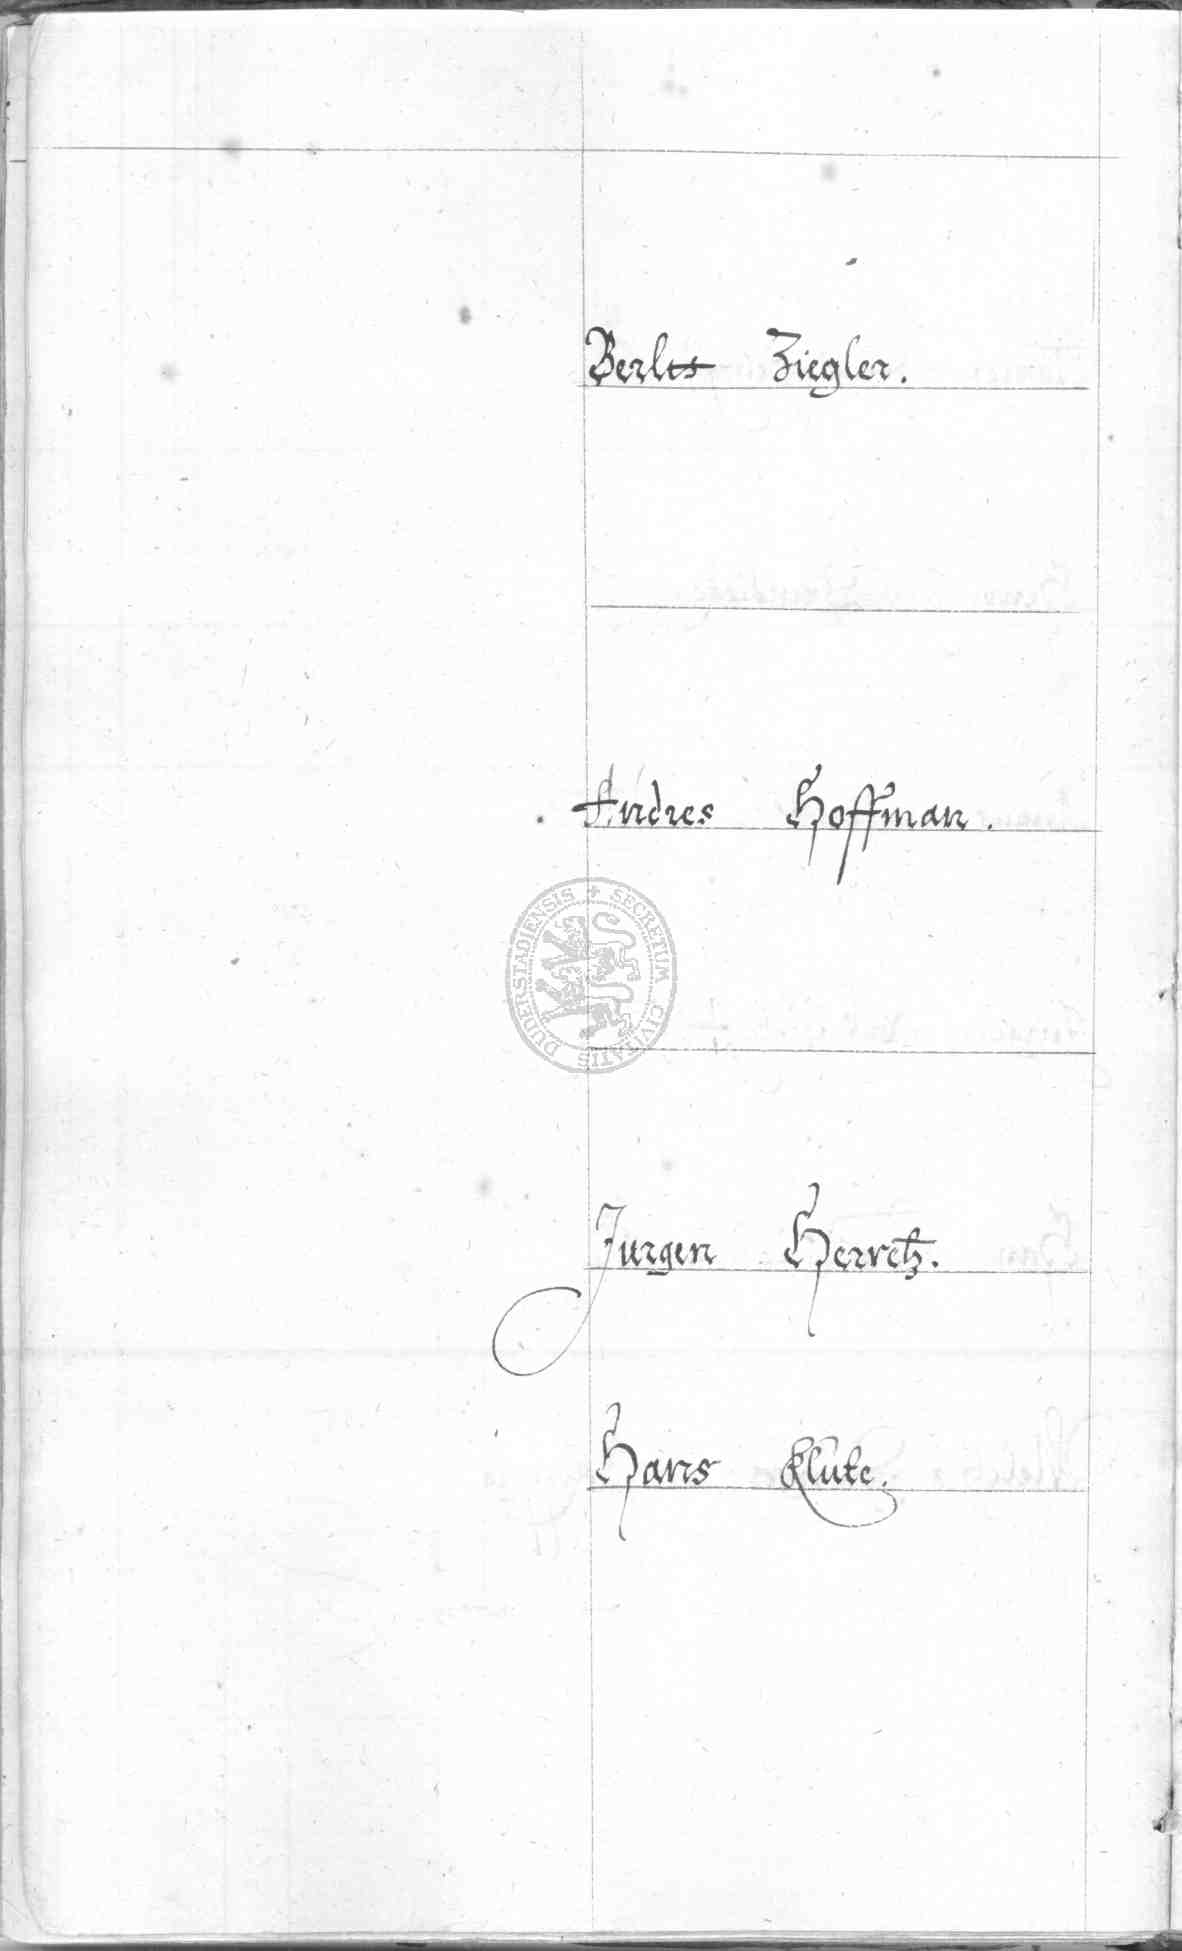 Berltt Ziegler.
Andres Hoffman.
SECRETUM CIVITATIS DUDERSTADIENSIS
Jurgen
Hans Klüte.